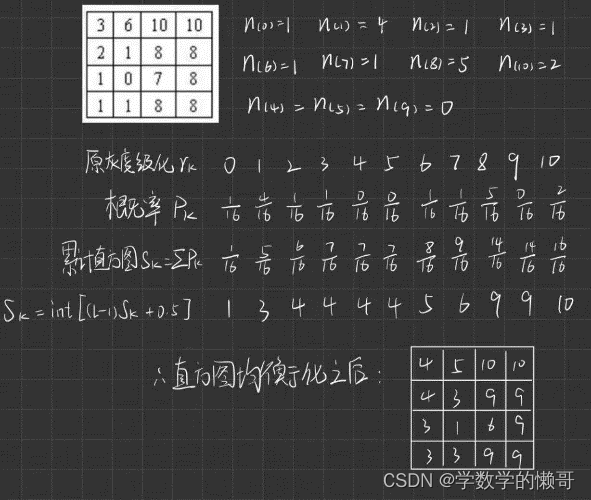 3 6 10 10
2 1 8 8
1 0 7 8
1 1 8 8
n(0)=1 n(1)=4 n(2)=1 n(3)=1
n(6)=1 n(7)=1 n(8)=5 n(10)=2
n(4)=n(5)=n(9)=0
原灰度级化 rk 0 1 2 3 4 5 6 7 8 9 10
概率 Pk 1/16 4/16 1/16 1/16 0/16 0/16 1/16 1/16 5/16 0/16 2/16
累计直方图 Sk=ΣPk 1/16 5/16 6/16 7/16 7/16 7/16 8/16 9/16 14/16 14/16 16/16
Sk=int[(L-1)Sk+0.5] 1 3 4 4 4 4 5 6 9 9 10
∴直方图均衡化之后:
4 5 10 10
4 3 9 9
3 1 6 9
3 3 9 9
CSDN @学数学的懒哥